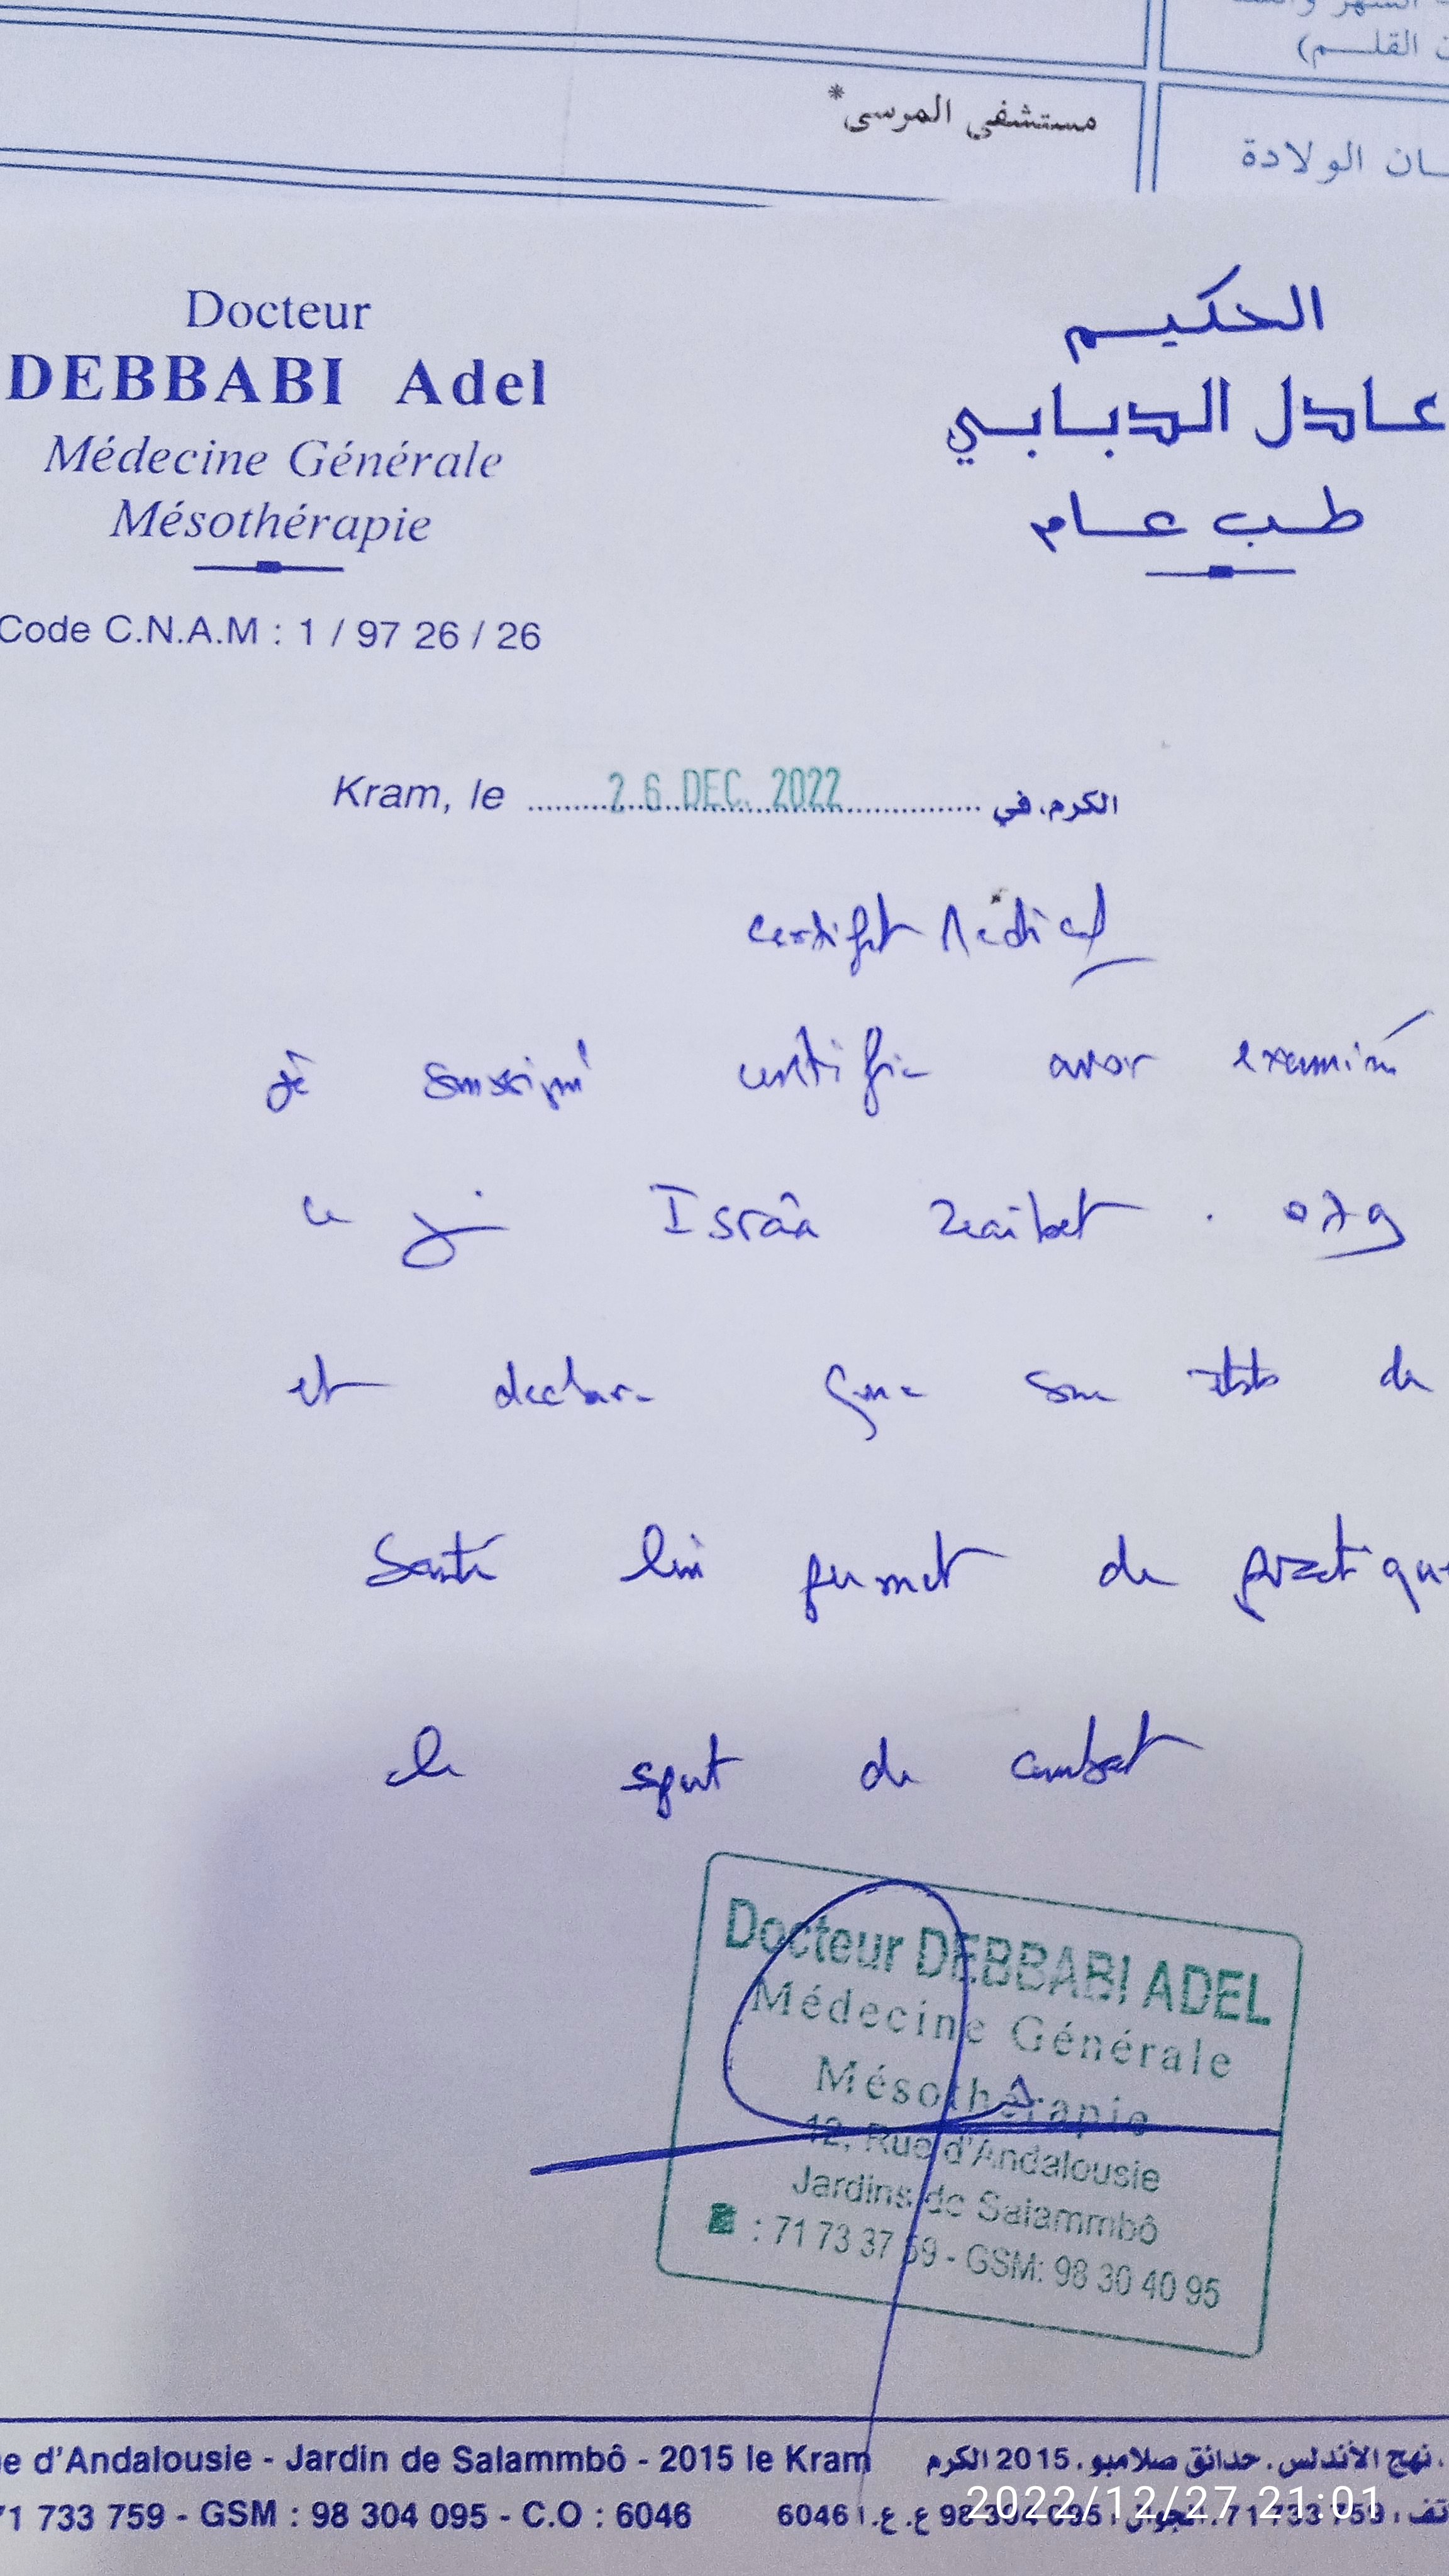 ن القلـــم)
مستشفى المرسى*
ـان الولادة
Docteur
DEBBABI Adel
Médecine Générale
Mésothérapie
Code C.N.A.M : 1 / 97 26 / 26
الحكيـــم
عــادل الدبـابـي
طــب عــام
Kram, le 26 DEC. 2022 الكرم، في
Certificat Médical
Je soussigné certifie avoir examiné
ce jour Israa Zaibet
et declare que son état de
Santé lui permet de pratique
le sport de combat
Docteur DEBBABI ADEL
Médecine Générale
Mésothérapie
12, Rue d'Andalousie
Jardins de Salammbô
: 71 73 37 59 - GSM: 98 30 40 95
e d'Andalousie - Jardin de Salammbô - 2015 le Kram
نهج الأندلس، حدائق صلامبو، 2015 الكرم
71 733 759 - GSM : 98 304 095 - C.O : 6046
تف : 71 733 759، الجوال : 98 304 095 ع. ع. : 6046
2022/12/27 21:01